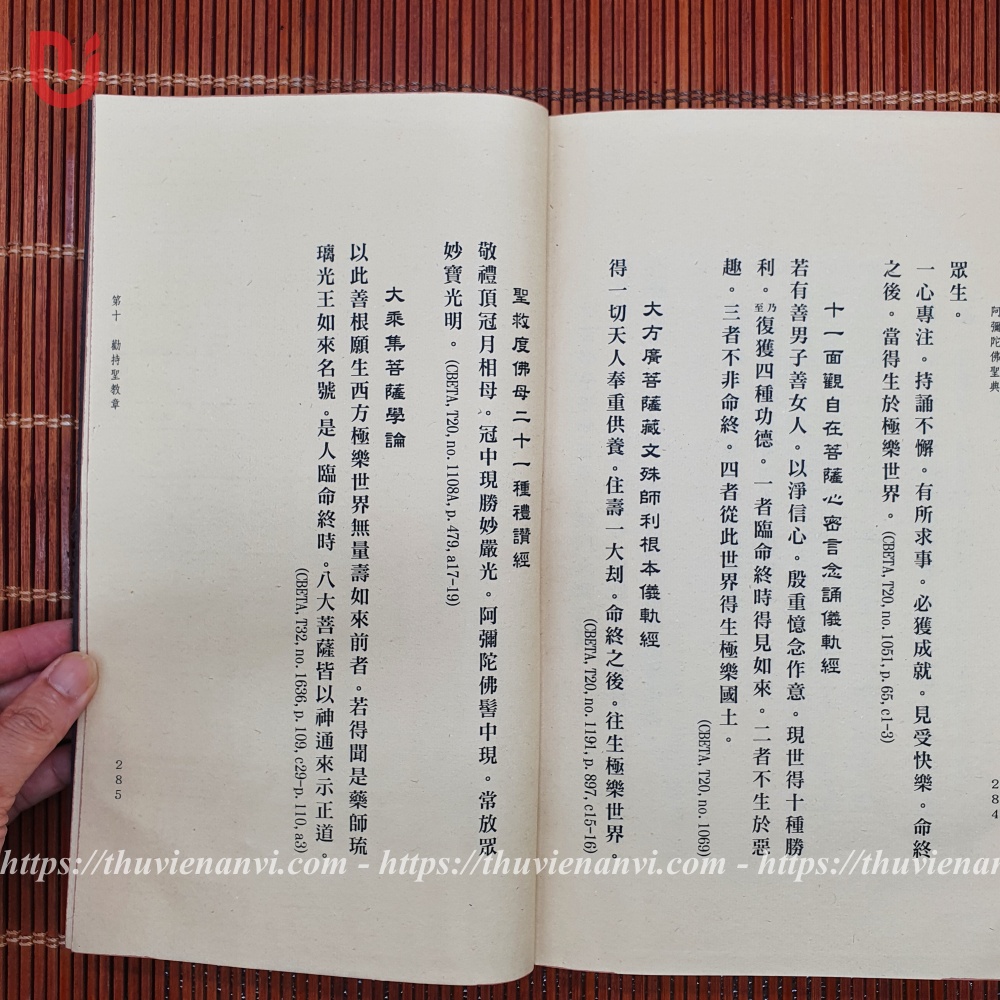 阿彌陀佛聖典
284
眾生。
一心專注。持誦不懈。有所求事。必獲成就。見受快樂。命終
之後。當得生於極樂世界。(CBETA, T20, no. 1051, p. 65, c1-3)
十一面觀自在菩薩心密言念誦儀軌經
若有善男子善女人。以淨信心。殷重憶念作意。現世得十種勝
利。乃至復獲四種功德。一者臨命終時得見如來。二者不生於惡
趣。三者不非命終。四者從此世界得生極樂國土。
(CBETA, T20, no. 1069)
大方廣菩薩藏文殊師利根本儀軌經
得一切天人奉重供養。住壽一大劫。命終之後。往生極樂世界。
(CBETA, T20, no. 1191, p. 897, c15-16)
聖救度佛母二十一種禮讚經
敬禮頂冠月相母。冠中現勝妙嚴光。阿彌陀佛髻中現。常放眾
妙寶光明。(CBETA, T20, no. 1108A, p. 479, a17-19)
大乘集菩薩學論
以此善根願生西方極樂世界無量壽如來前者。若得聞是藥師琉
璃光王如來名號。是人臨命終時。八大菩薩皆以神通來示正道。
(CBETA, T32, no. 1636, p. 109, c29-p. 110, a3)
第十 勸持聖教章
285
https://thuvienanvi.com - https://thuvienanvi.com - https://thuvienan